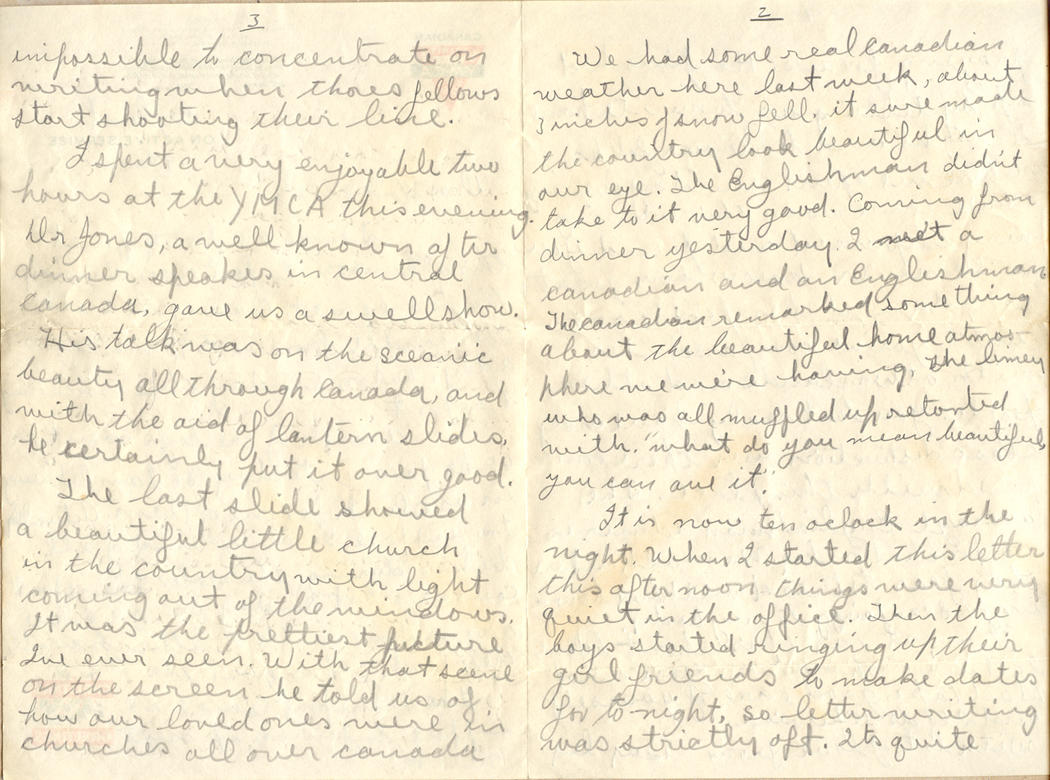 2
We had some real Canadian
weather here last week, about
3 inches of snow fell, it sure made
the country look beautiful in
our eye. The Englishman didn't
take to it very good. Coming from
dinner yesterday I met a
canadian and an Englishman
The canadian remarked something
about the beautiful home atmos-
phere we were having, The limey
who was all muffled up retorted
with. "what do you mean beautiful,
you can ave it."
It is now ten oclock in the
night. When I started this letter
this afternoon things were very
quiet in the office. Then the
boys started ringing up their
girl friends to make dates
for to-night, so letter writing
was strictly off. Its quite
3
impossible to concentrate on
writing when thoes fellows
start shooting their line.
I spent a very enjoyable two
hours at the YMCA this evening.
Dr Jones, a well known after
dinner speaker in central
Canada, gave us a swell show.
His talk was on the sceanic
beauty all through Canada, and
with the aid of lantern slides,
he certainly put it over good.
The last slide showed
a beautiful little church
in the country with light
coming out of the windows.
It was the prettiest picture
Ive ever seen. With that scene
on the screen he told us of
how our loved ones were in
churches all over canada